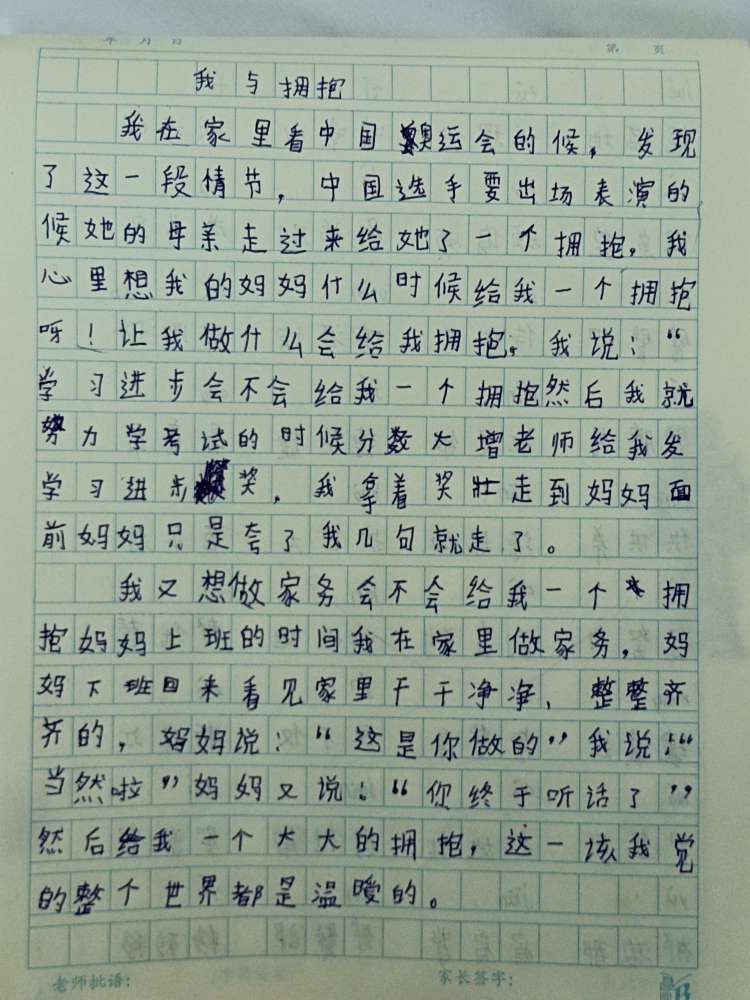 年 月 日 第 页
我与拥抱
我在家里看中国奥运会的候，发现
了这一段情节，中国选手要出场表演的
候她的母亲走过来给她了一个拥抱，我
心里想我的妈妈什么时候给我一个拥抱
呀！让我做什么会给我拥抱，我说：“
学习进步会不会给我一个拥抱然后我就
努力学考试的时候分数大增老师给我发
学习进步奖，我拿着奖壮走到妈妈面
前妈妈只是夸了我几句就走了。
我又想做家务会不会给我一个拥
抱妈妈上班的时间我在家里做家务，妈
妈下班回来看见家里干干净净、整整齐
齐的，妈妈说：“这是你做的”我说：“
当然啦”妈妈又说：“你终于听话了”
然后给我一个大大的拥抱，这一该我觉
的整个世界都是温暖的。
老师批语： 家长签字：